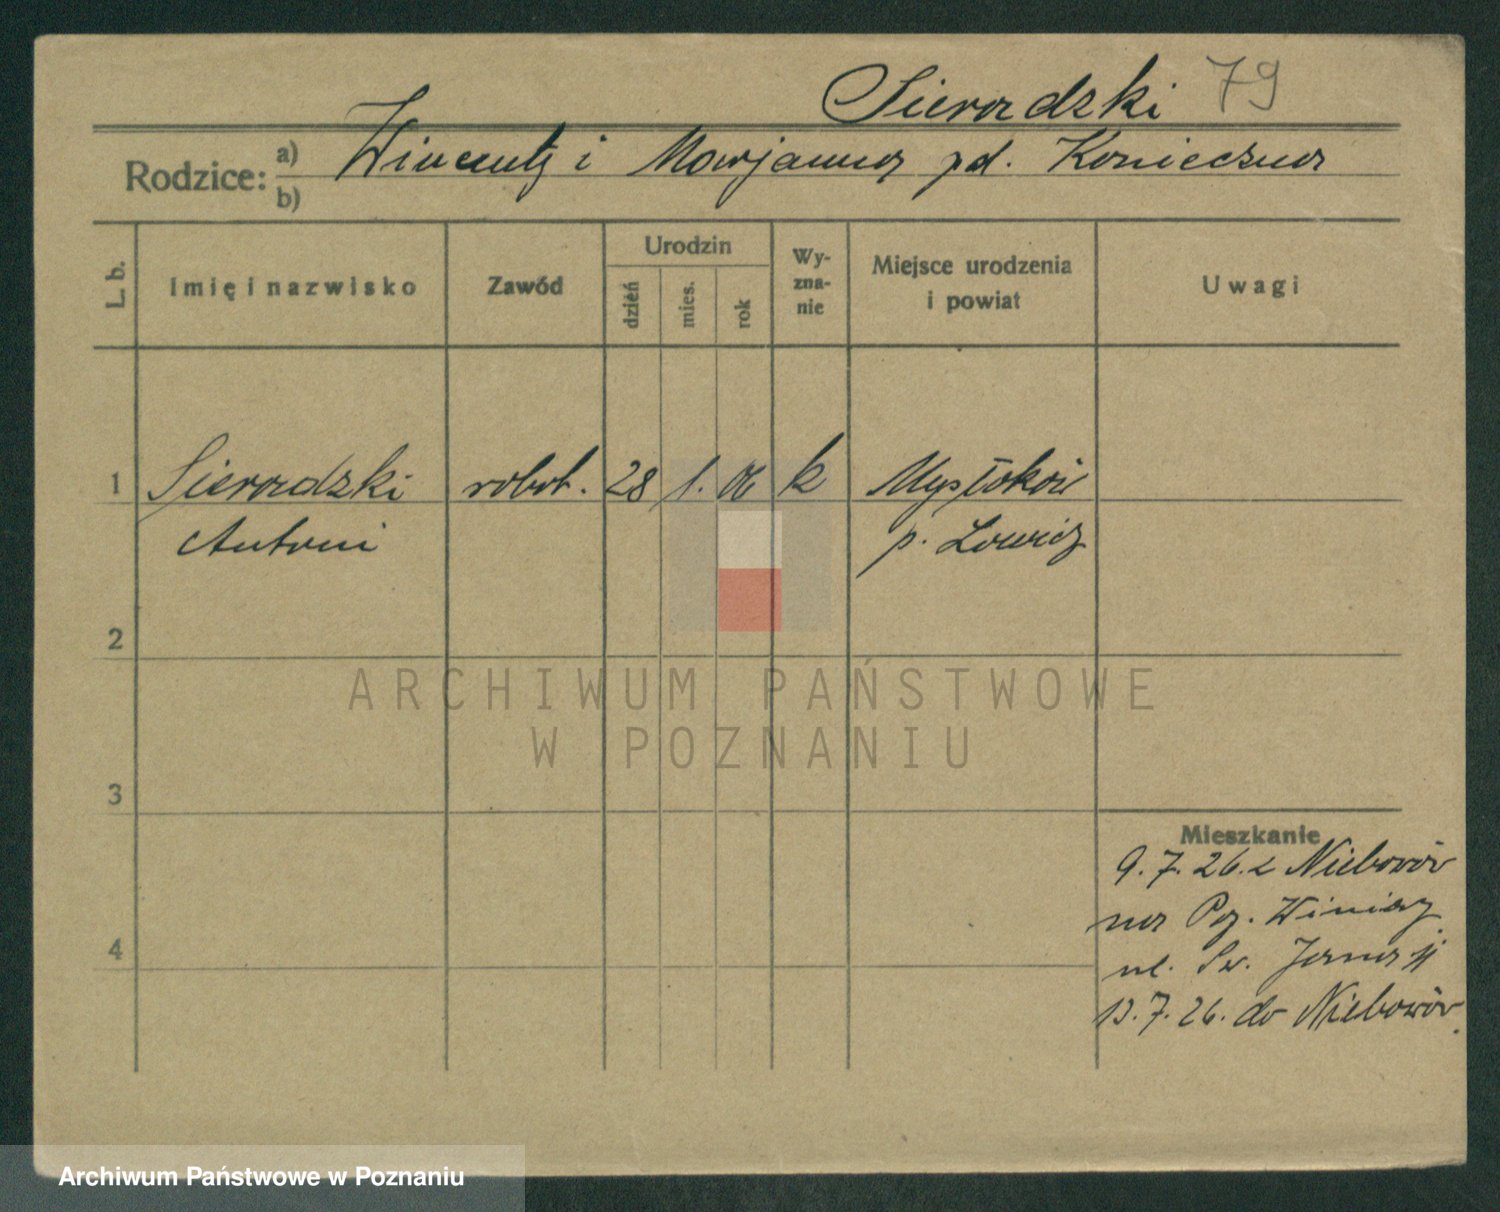 Sieradzki 79
Rodzice: a) Wincenty i Marjanna zd. Konieczna
b)
L. b.
Imię i nazwisko
Zawód
Urodzin
dzień
mies.
rok
Wy-
zna-
nie
Miejsce urodzenia
i powiat
Uwagi
1 Sieradzki robot. 28 1. 06 k
Antoni p. Łowicz
2
3
4
Mieszkanie
9.7.26. z Nieborów
na Poz. Winiary
ul. Św.
13.7.26. do Nieborów.
ARCHIWUM PAŃSTWOWE
W POZNANIU
Archiwum Państwowe w Poznaniu